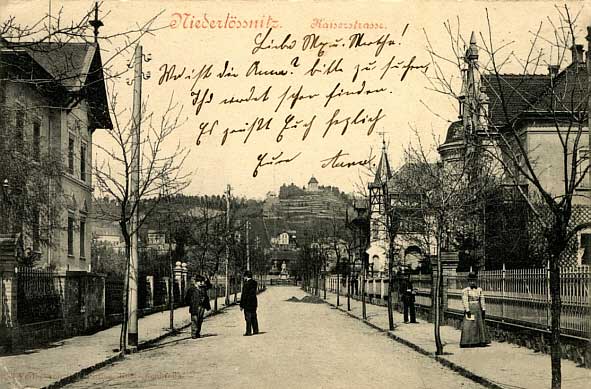 Niederlössnitz. Kaiserstrasse.
Liebe M u. Martha!
Wo ist die Anna? bitte zu suchen,
Ihr werdet schon finden.
Es grüßt Euch herzlich
Eure Anna